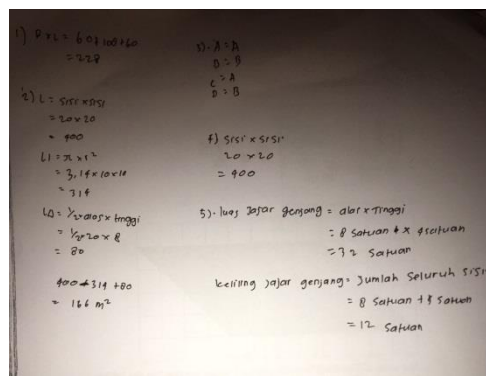 1) P x L = 60 + 108 + 60
= 228
2) L = sisi x sisi
= 20 x 20
= 400
L = π x r²
= 3,14 x 10 x 10
= 314
LΔ = 1/2 x alas x tinggi
= 1/2 x 20 x 8
= 80
400 + 314 + 80
= 166 m²
3). A = A
B = B
C = A
D = B
4) sisi x sisi
20 x 20
= 400
5). luas jajar genjang = alas x tinggi
= 8 satuan x 4 satuan
= 32 satuan
keliling jajar genjang = jumlah seluruh sisi
= 8 satuan + 4 satuan
= 12 satuan